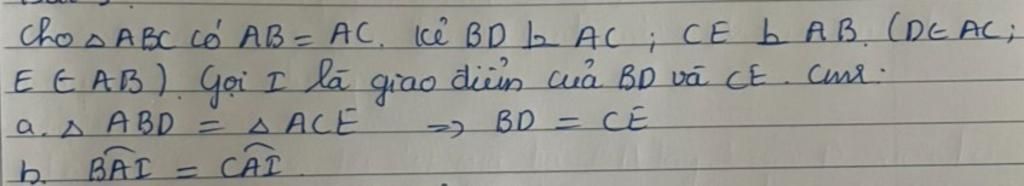 Cho △ABC có AB = AC. Kẻ BD ⊥ AC ; CE ⊥ AB. (D ∈ AC;
E ∈ AB). Gọi I là giao điểm của BD và CE. Cmr:
a. △ ABD = △ ACE ⇒ BD = CE
b. \widehat{BAI} = \widehat{CAI}.